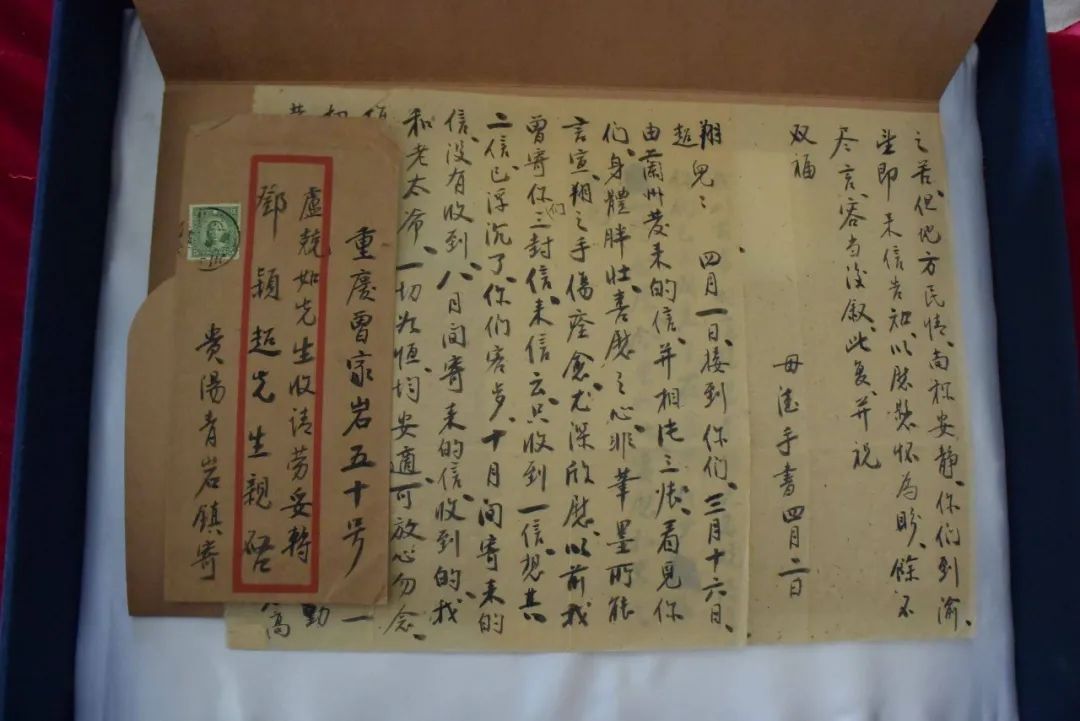 之苦、但他方民情、尚称安静、你们到渝、
望即来信告知、以慰愁怀為盼、餘不
尽言、容当後叙、此复、并祝
双福
母德手書四月二日
翔超兒：四月一日、接到你们、三月十六日、
由蘭州發来的信、并相片三张、看見你
们、身體胖壮、喜慰之心、非筆墨所能
言宣、翔之手傷痊愈、尤深欣慰、以前我
曾寄你们三封信、来信云、只收到一信、想其
二信、已浮沉了、你们客岁、十月间寄来的
信、没有收到、八月间寄来的信、收到的、我
和老太爷、一切如恒、均安適、可放心勿念、
一
勤
高
重慶曾家岩五十号
盧競如先生收请劳妥轉
鄧穎超先生親啓
貴陽青岩鎮寄